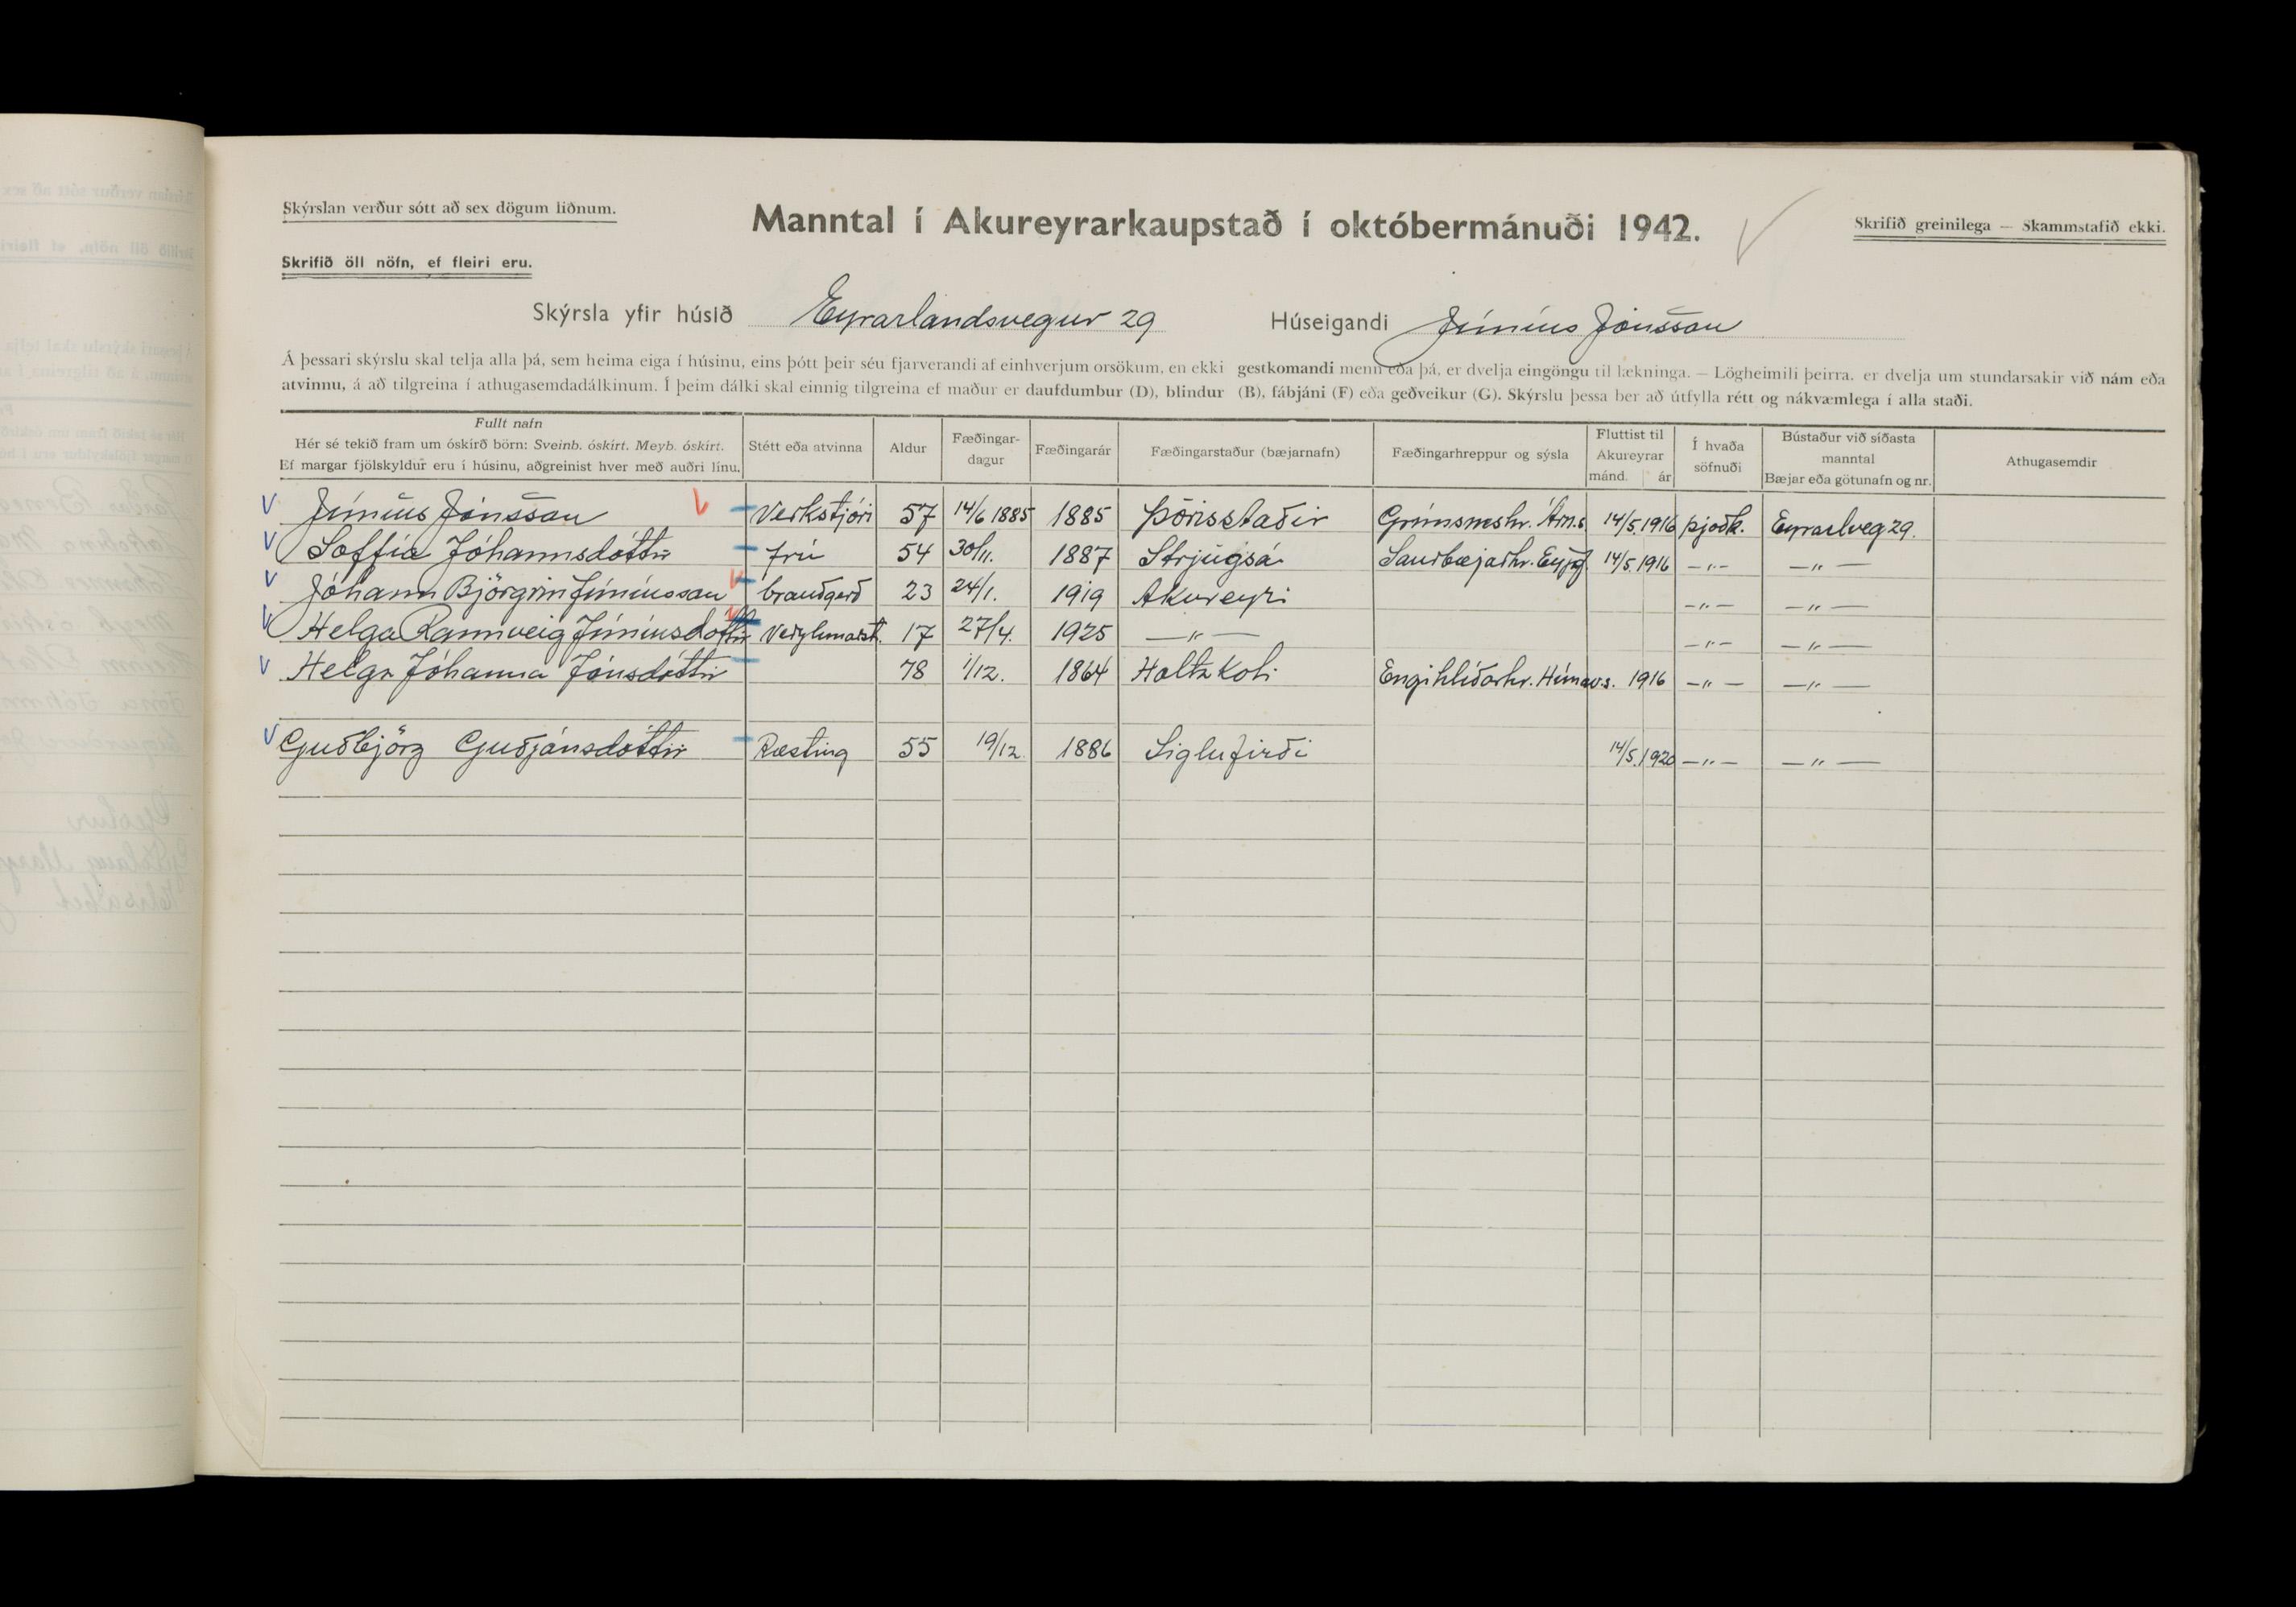 Skýrslan verður sótt að sex dögum liðnum.
Manntal í Akureyrarkaupstað í októbermánuði 1942.
Skrifið greinilega — Skammstafið ekki.
Skrifið öll nöfn, ef fleiri eru.
Skýrsla yfir húsið Eyrarlandsvegur 29 Húseigandi Júníus Jónsson
Á þessari skýrslu skal telja alla þá, sem heima eiga í húsinu, eins þótt þeir séu fjarverandi af einhverjum orsökum, en ekki gestkomandi menn eða þá, er dvelja eingöngu til lækninga. — Lögheimili þeirra, er dvelja um stundarsakir við nám eða
atvinnu, á að tilgreina í athugasemdadálkinum. Í þeim dálki skal einnig tilgreina ef maður er daufdumbur (D), blindur (B), fábjáni (F) eða geðveikur (G). Skýrslu þessa ber að útfylla rétt og nákvæmlega í alla staði.
Fullt nafn
Hér sé tekið fram um óskírð börn: Sveinb. óskírt. Meyb. óskírt.
Ef margar fjölskyldur eru í húsinu, aðgreinist hver með auðri línu.
Stétt eða atvinna
Aldur
Fæðingar-
dagur
Fæðingarár
Fæðingarstaður (bæjarnafn)
Fæðingarhreppur og sýsla
Fluttist til
Akureyrar
mánd. ár
Í hvaða
söfnuði
Bústaður við síðasta
manntal
Bæjar eða götunafn og nr.
Athugasemdir
Júníus Jónsson Verkstjóri 57 14/6 1885 1885 Þórisstaðir Grímsneshr. Árn.s. 14/5. 1916 þjóðk. Eyrarlveg 29.
Soffía Jóhannsdóttir frú 54 30/11. 1887 Strjúgsá Saurbæjarhr. Eyjf. 14/5. 1916 —"— —"—
Jóhann Björgvin Júníusson brauðgerð 23 24/1. 1919 Akureyri —"— —"—
Helga Rannveig Júníusdóttir 17 27/4. 1925 —"— —"— —"—
Helga Jóhanna Jónsdóttir 78 1/12. 1864 Holtakoti Engihlíðarhr. Húnav.s. 1916 —"— —"—
Guðbjörg Guðjónsdóttir Ræsting 55 19/12. 1886 Siglufirði 14/5. 1920 —"— —"—